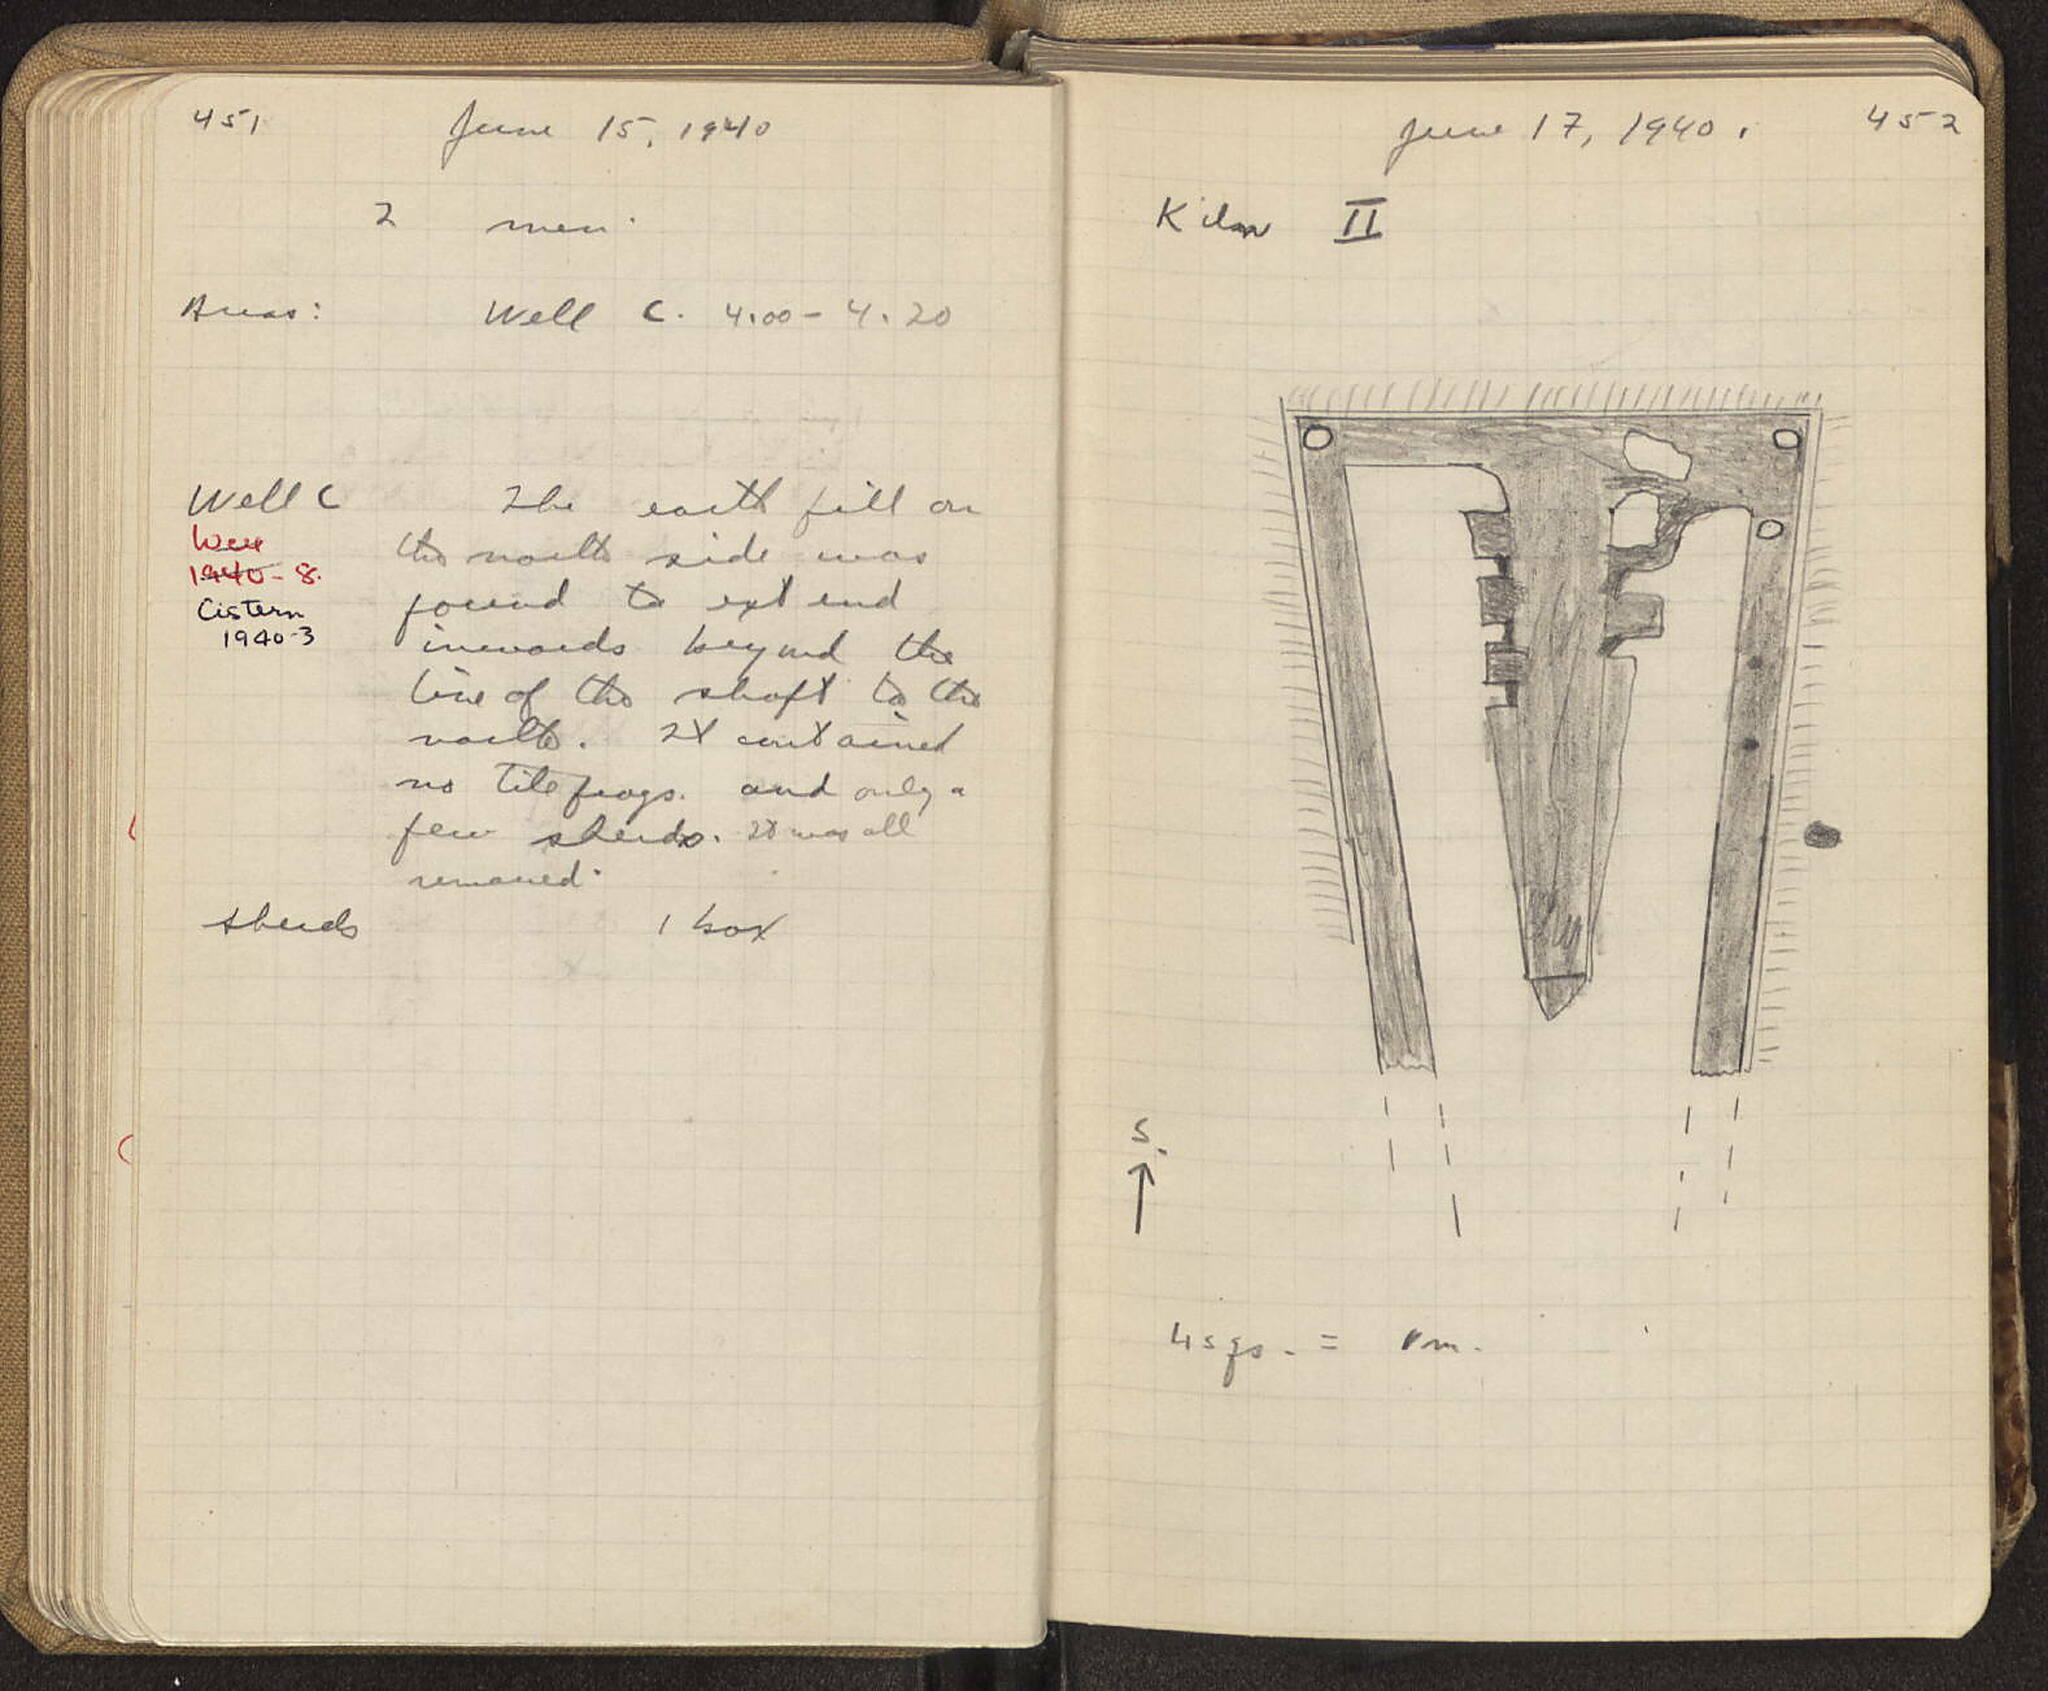 451 June 15, 1940
2 men
Areas: Well C. 4.00 - 4.20
Well C The earth fill on
Well
1940-8.
Cistern
1940-3
the north side was
found to extend
inwards beyond the
line of the shaft to the
north. It contained
no tile frags. and only a
few sherds. It was all
removed.
sherds 1 box
June 17, 1940. 452
Kiln II
S.
4 sqs. = 1 m.